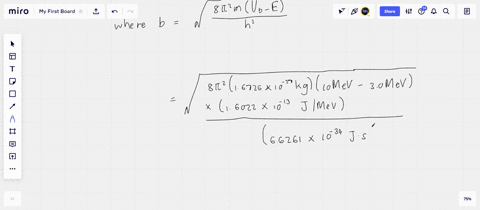 miro My First Board Share
where b = √(8π²m(U₀-E)/h²)
= √(8π²(1.6726 x 10⁻²⁷ kg)(10MeV - 3.0MeV)
x (1.6022 x 10⁻¹³ J/MeV)
(6.6261 x 10⁻³⁴ J s
75%